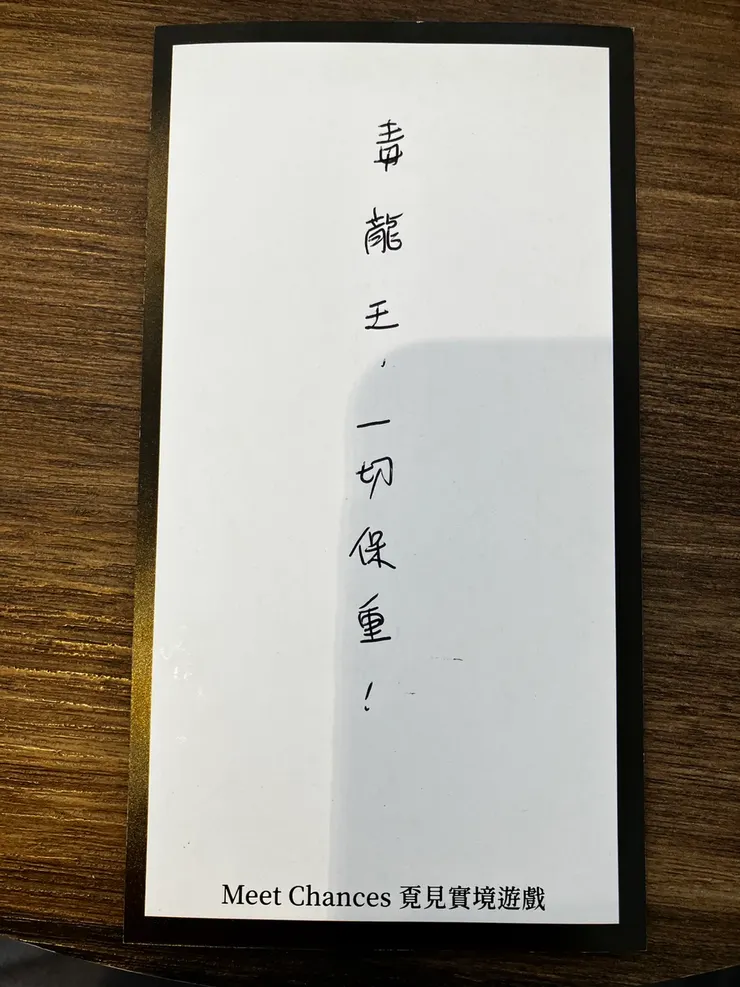 毒龍王，一切保重！
Meet Chances 覔見實境遊戲